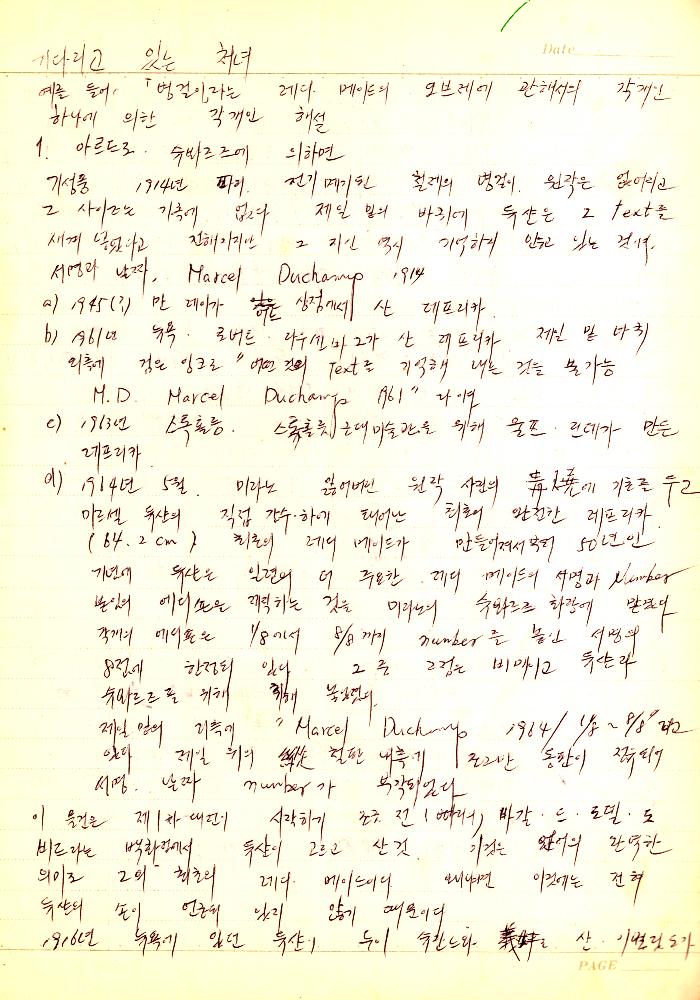 Date
기다리고 있는 처녀
예를 들어, 「병걸이」라는 레디 메이드의 오브제에 관해서의 각개인
하나에 의한 각개인 해설
1. 아르뜨로·슈와르즈에 의하면
기성품 1914년 파리. 전기 메끼된 철제의 병걸이. 원작은 없어지고
그 사이즈는 기록에 없다 제일 밑의 바퀴에 듀샹은 그 text를
새겨 넣었다고 전해가지만 그 자신 역시 기억하지 않고 있는 것이다.
서명과 날짜. Marcel Duchamp 1914
a) 1945(?) 만 레이가 상점에서 산 레프리카.
b) 1961년 뉴욕·로버트·라우센버그가 산 레프리카 제일 밑 바퀴
외측에 검은 잉크로 "어떤 것의 Text로 기억해 내는 것을 불가능
M.D. Marcel Duchamp 1961" 라 이다
c) 1963년 스톡홀름. 스톡홀름 근대미술관을 위해 울프·린데가 만든
레프리카
d) 1964년 5월. 미라노 잃어버린 원작 사진의 에 기초를 두고
마르셀 듀샹의 직접 감수·하에 태어난 최초의 완전한 레프리카
(64.2cm) 최초의 레디 메이드가 만들어져서부터 50년인
기념에 듀샹은 일련의 더 중요한 레디 메이드의 서명과 Number
붙임의 에디숀은 제작하는 것을 미라노의 슈와르즈 화랑에 맡겼다
각개의 에디숀은 1/8에서 8/8까지 number를 붙인 서명의
8점에 한정되 있다. 그 중 2점은 비매이고 듀샹과
슈와르즈를 위해 취해 놓았었다.
제일 밑의 리측에 "Marcel Duchamp 1964/ 1/8~8/8" 라고
있다 제일 위의 철판 내측에 조그만 동판이 접착되어
서명. 날짜 number가 부각되었다
이 물건은 제1차대전이 시작하기 조금 전 (빠리의) 바잘·드·로텔·드
비르라는 백화점에서 듀샹이 고르고 산 것. 이것은 의 완벽한
의미로 그의 최초의 레디·메이드이다 왜냐하면 이것에는 전혀
듀샹의 손이 언급되 있지 않기 때문이다
1916년 뉴욕에 있던 듀샹이 누이 슈잔느와 산·이벨릿도가
PAGE